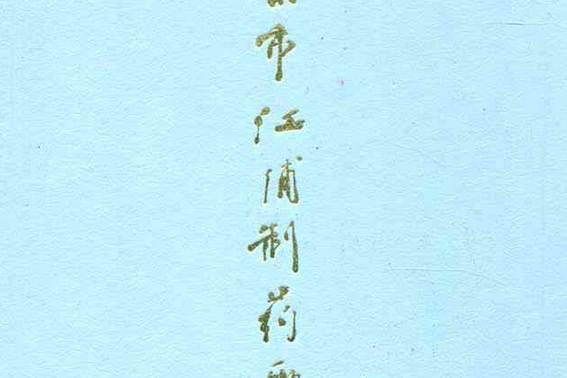 市江浦制药